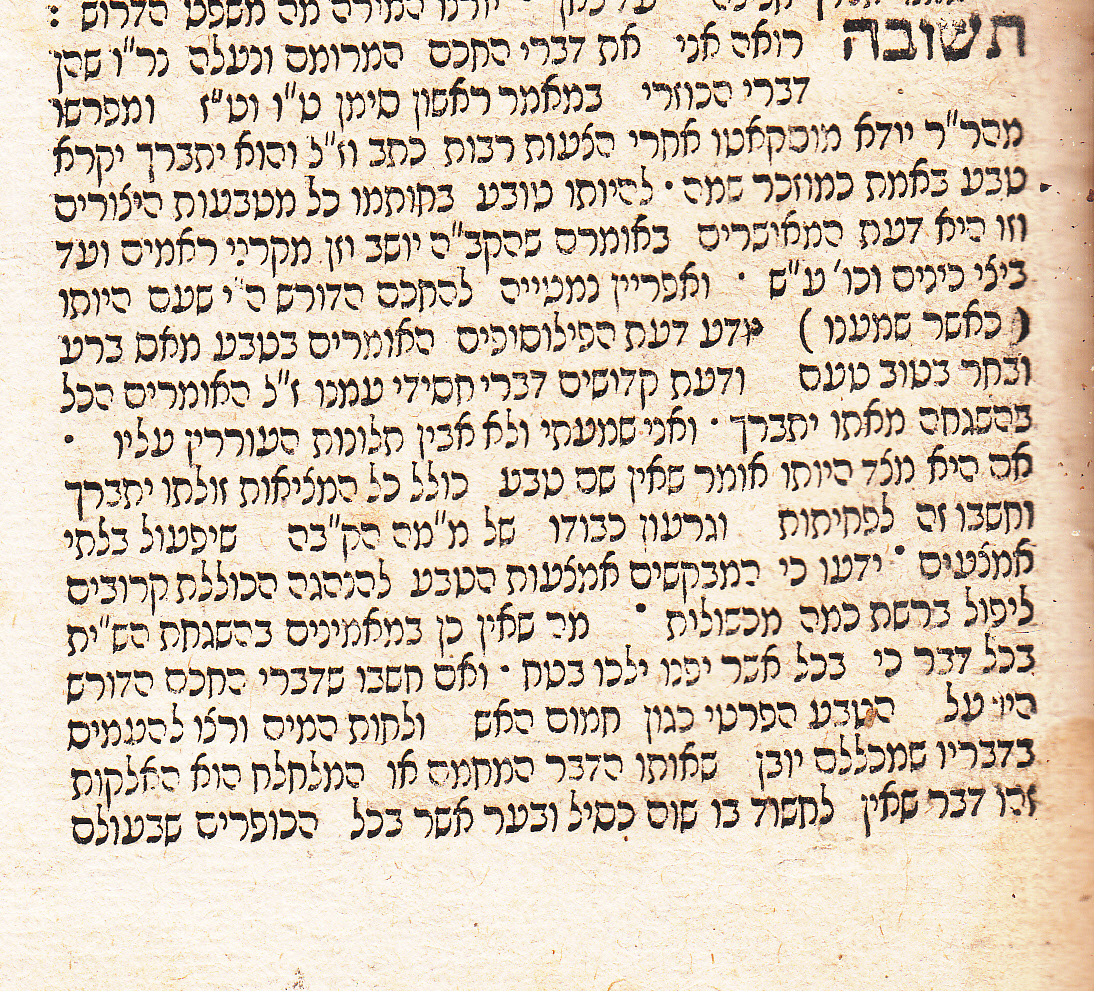 יורנו המורה מה משפט הדרוש :
תשובה רואה אני את דברי החכם המרומם ונעלה נר"ו שהן
דברי הכוזרי במאמר ראשון סימן ט"ו וט"ז ומפרשו
מהר"ר יודא מוסקאטו אחרי הצעות רבות כתב וז"ל והוא יתברך יקרא
טבע באמת כמוזכר שמה · להיותו טובע בחותמו כל מטבעות היצורים
וזו היא דעת המאושרים באומרם שהקב"ה יושב וזן מקרני ראמים ועד
ביצי כינים וכו' ע"ש · ואפריין נמטייה להחכם הדורש ה"י שעם היותו
( כאשר שמענו ) יודע דעת הפילוסופים האומרים בטבע מאס ברע
ובחר בטוב טעם ודעת קדושים דברי חסידי עמנו ז"ל האומרים הכל
בהשגחה מאתו יתברך · ואני שמעתי ולא אבין תלונות העוררין עליו ·
אם היא מצד היותו אומר שאין שם טבע כולל כל המציאות זולתו יתברך
וחשבו זה לפחיתות וגרעון כבודו של מ"מה הק"בה שיפעול בלתי
אמצעים · ידעו כי המבקשים אמצעות הטבע להנהגה הכוללת קרובים
ליפול ברשת כמה מכשולות · מה שאין כן במאמינים בהשגחת הש"ית
בכל דבר כי בכל אשר יפנו ילכו בטח · ואם חשבו שדברי החכם הדורש
היו על הטבע הפרטי כגון חמום האש ולחות המים ורצו להעמים
בדבריו שמכללם יובן שאותו הדבר המחמם או המלחלח הוא האלקות
זהו דבר שאין לחשוד בו שום כסיל ובער אשר בכל הכופרים שבעולם